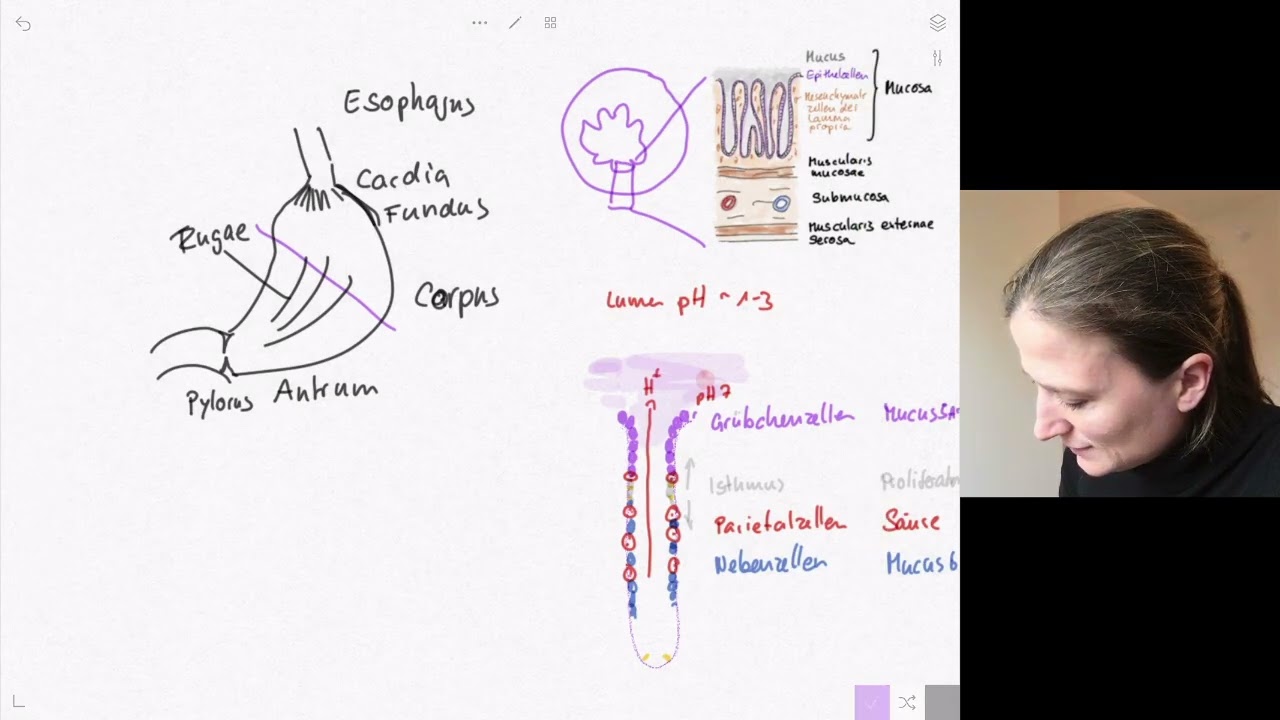 Esophagus
Cardia
Fundus
Rugae
Corpus
Antrum
Pylorus
Mucus
Epithelzellen
Mesenchymale
zellen der
Lamina
propria
Mucosa
Muscularis
mucosae
Submucosa
Muscularis externae
Serosa
Lumen pH ~ 1-3
H+
pH 7
Grübchenzellen Mucus5A
Isthmus Proliferatn
Parietalzellen Säure
Nebenzellen Mucus6